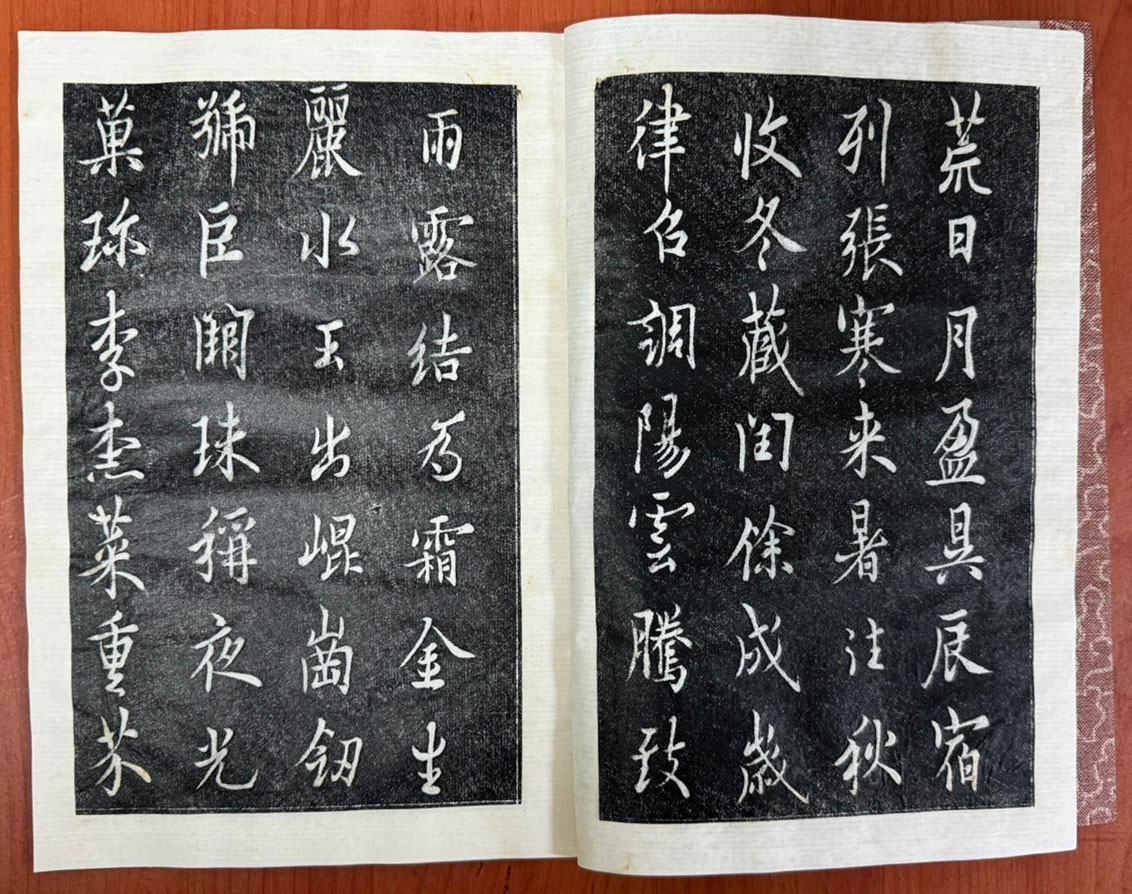 荒日月盈昃辰宿
列張寒来暑往秋
收冬蔵閏餘成歲
律召調陽雲騰致
雨露結為霜金生
麗水玉出崐崗劔
號巨闕珠稱夜光
菓珎李柰菜重芥